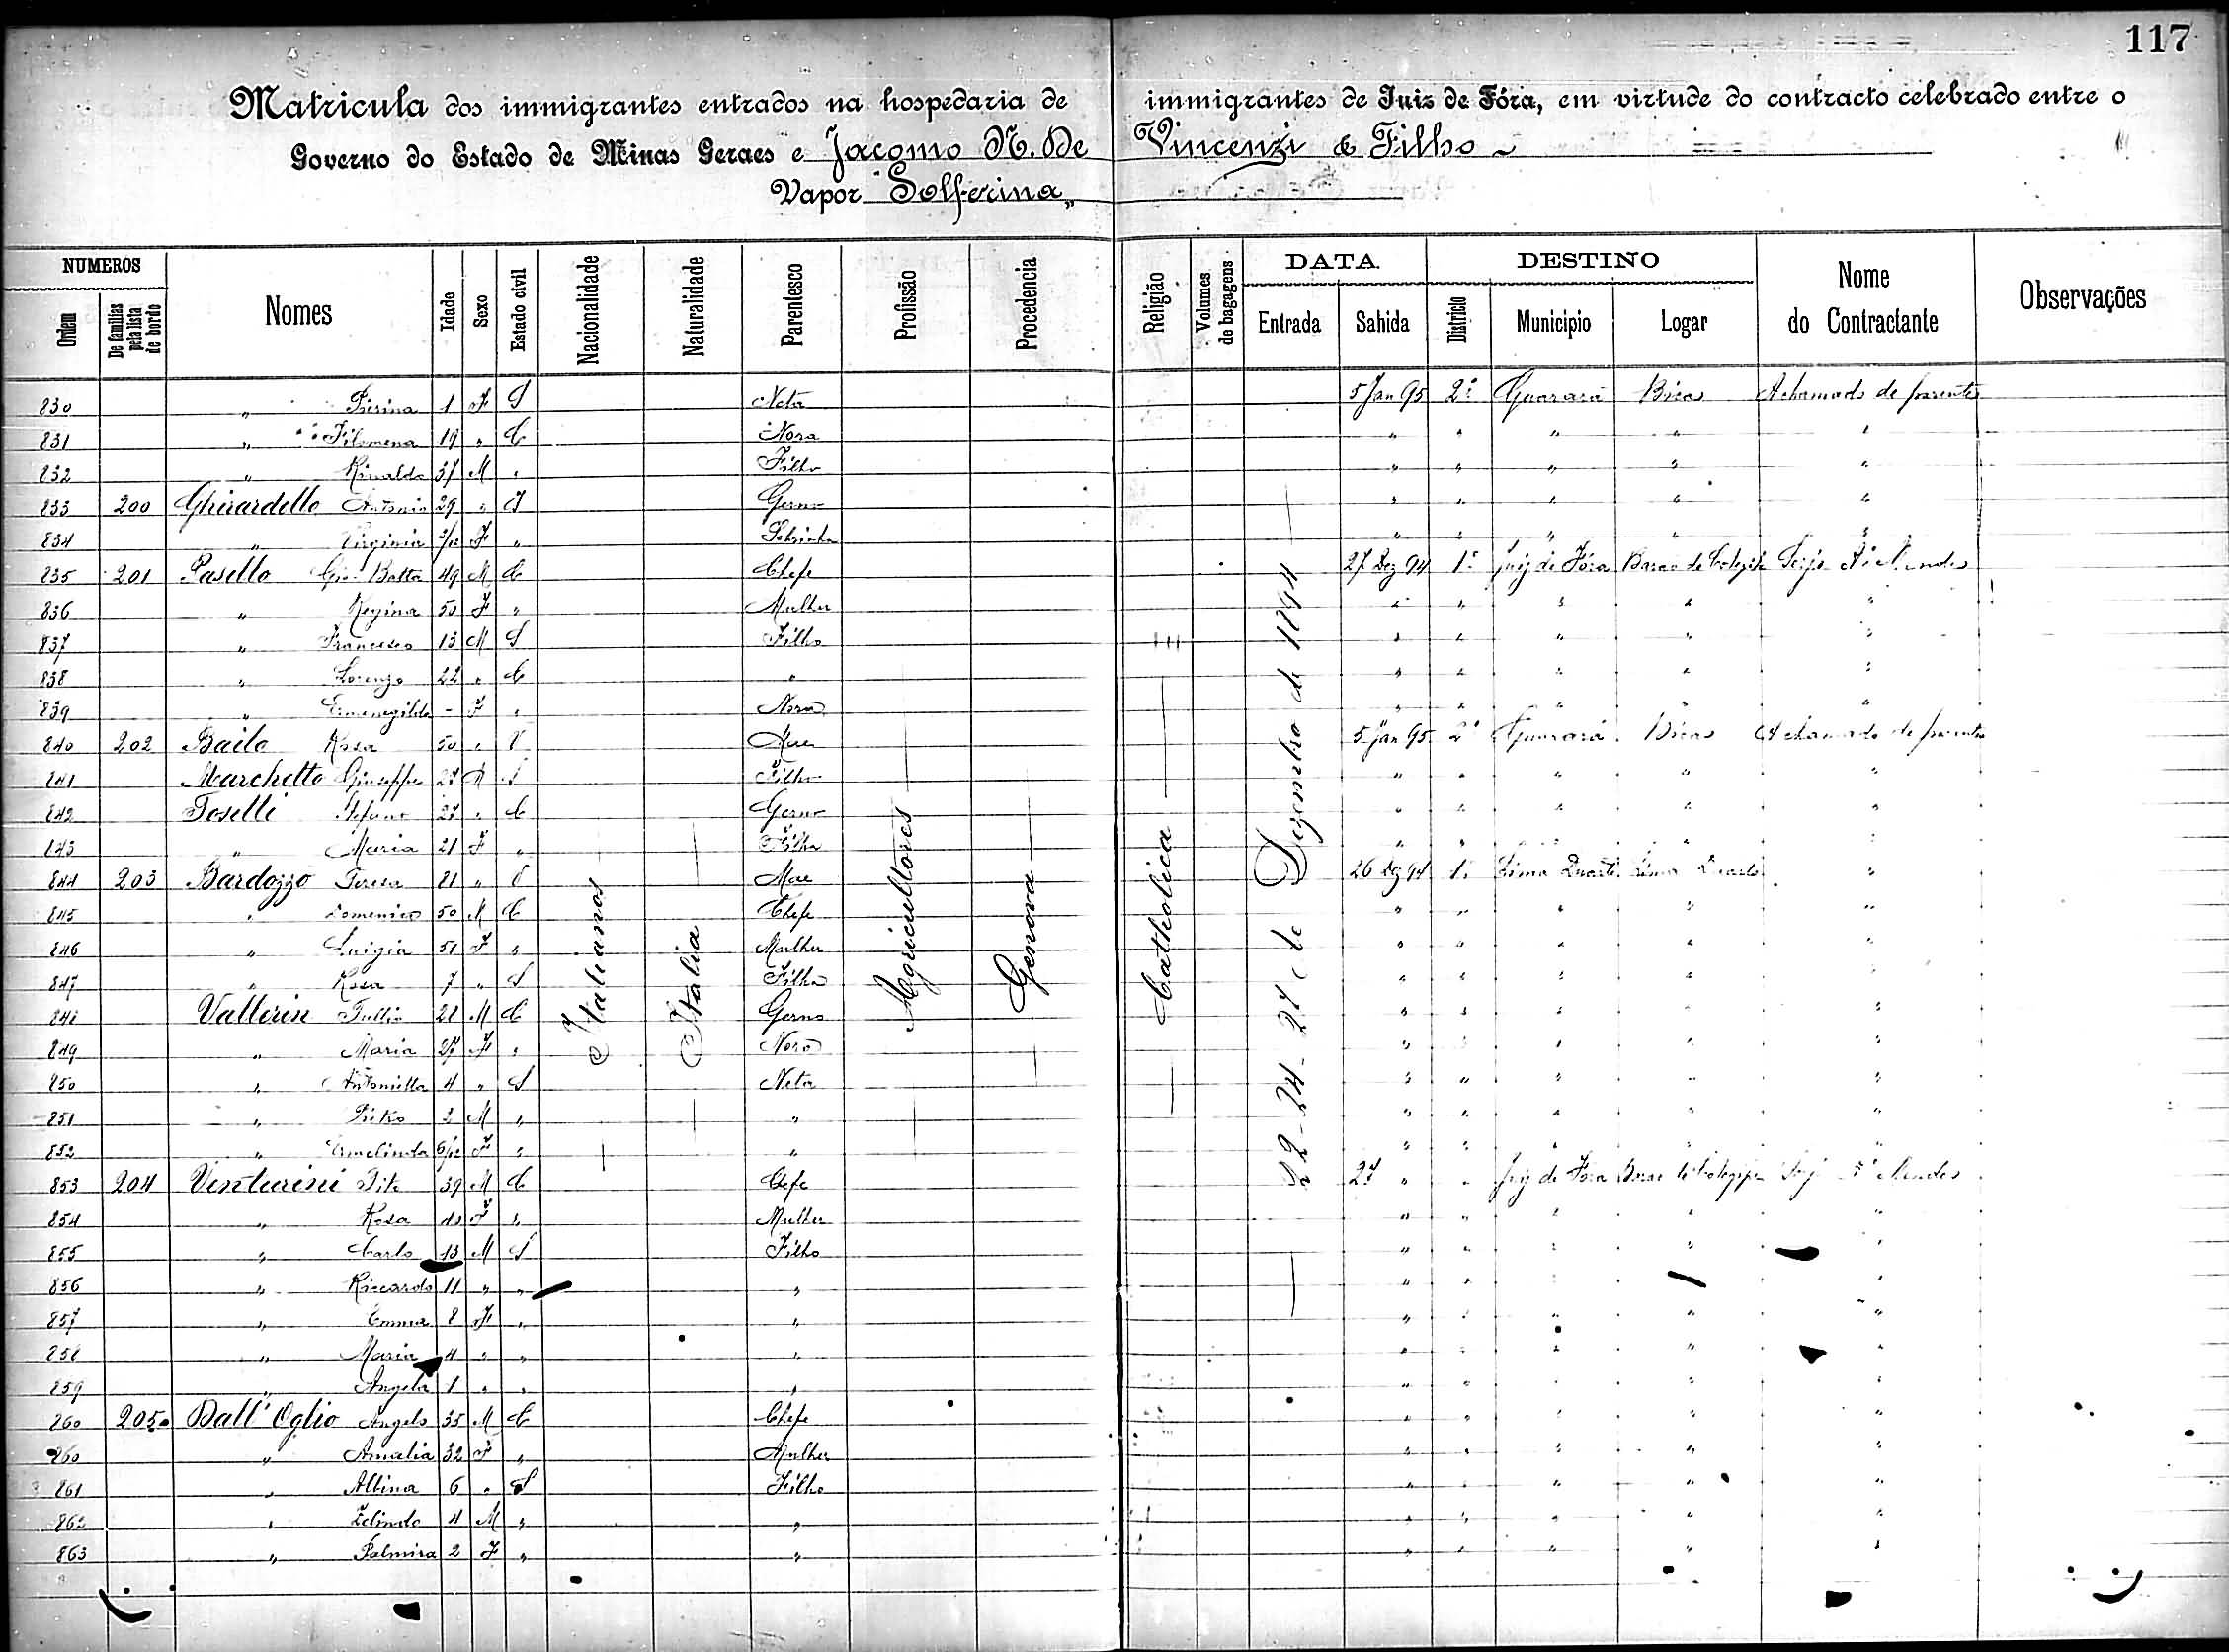 117
Matricula dos immigrantes entrados na hospedaria de immigrantes de Juiz de Fóra, em virtude do contracto celebrado entre o
Governo do Estado de Minas Geraes e Jacomo N. De Vincenzi & Filho
Vapor "Solferina"
NUMEROS DATA DESTINO
Ordem De familias pela lista de bordo Nomes Idade Sexo Estado civil Nacionalidade Naturalidade Parentesco Profissão Procedencia Religião Volumes de bagagens Entrada Sahida Districto Municipio Logar Nome do Contractante Observações
Italianos Italia Agricultores Genova Catholica 22-24-27 de Dezembro de 1894
830 " Pierina 1 F S Neta 5 Jan 95 2º Guarará Bicas A chamado de parentes
831 " Filomena 19 " C Nora " " " " "
832 " Rinaldo 37 M " Filho " " " " "
833 200 Ghirardello Antonio 29 " S Genro " " " " "
834 " Virginia F " Sobrinha " " " " "
835 201 Pasello Gio Batta 49 M C Chefe 27 Dez 94 1º Juiz de Fóra Barao de Cotegipe Mendes
836 " Regina 50 F " Mulher " " " " "
837 " Francesco 13 M S Filho " " " " "
838 " Lorenzo 22 " C " " " " " "
839 " Ermenegilda - F " Nora " " " " "
840 202 Bailo Rosa 50 " V Mae 5 Jan 95 2º Guarará Bicas A chamado de parentes
841 Marchetto Giuseppe 27 M S Filho " " " " "
842 Toselli Stefano 27 " C Genro " " " " "
843 " Maria 21 F " Filha " " " " "
844 203 Bardozzo Teresa 81 " V Mae 26 Dez 94 1º Lima Duarte Lima Duarte "
845 " Domenico 50 M C Chefe " " " " "
846 " Luigia 51 F " Mulher " " " " "
847 " Rosa 7 " S Filha " " " "
848 Vallerin Tullio 28 M C Genro " " " "
849 " Maria 27 F " Nora " " " " "
850 " Antonietta 4 " S Neta " " " " "
851 " Pietro 2 M " " " " " " "
852 " Ermelinda 6/12 F " " " " " " "
853 204 Venturini Tito 39 M C Chefe 27 " " Juiz de Fora Barao de Cotegipe Mendes
854 " Rosa F " Mulher " " " " "
855 " Carlo 13 M S Filho " " " " "
856 " Riccardo 11 " " " " " " "
857 " Emma 8 F " " " " " " "
858 " Maria 4 " " " " " " " "
859 " Angela 1 " " " " " " " "
860 205 Dall' Oglio Angelo 35 M C Chefe " " " " "
860 " Amalia 32 F " Mulher " " " " "
861 " Albina 6 " S Filho " " " " "
862 " Zelindo 4 M " " " " " " "
863 " Palmira 2 F " " " " " " "